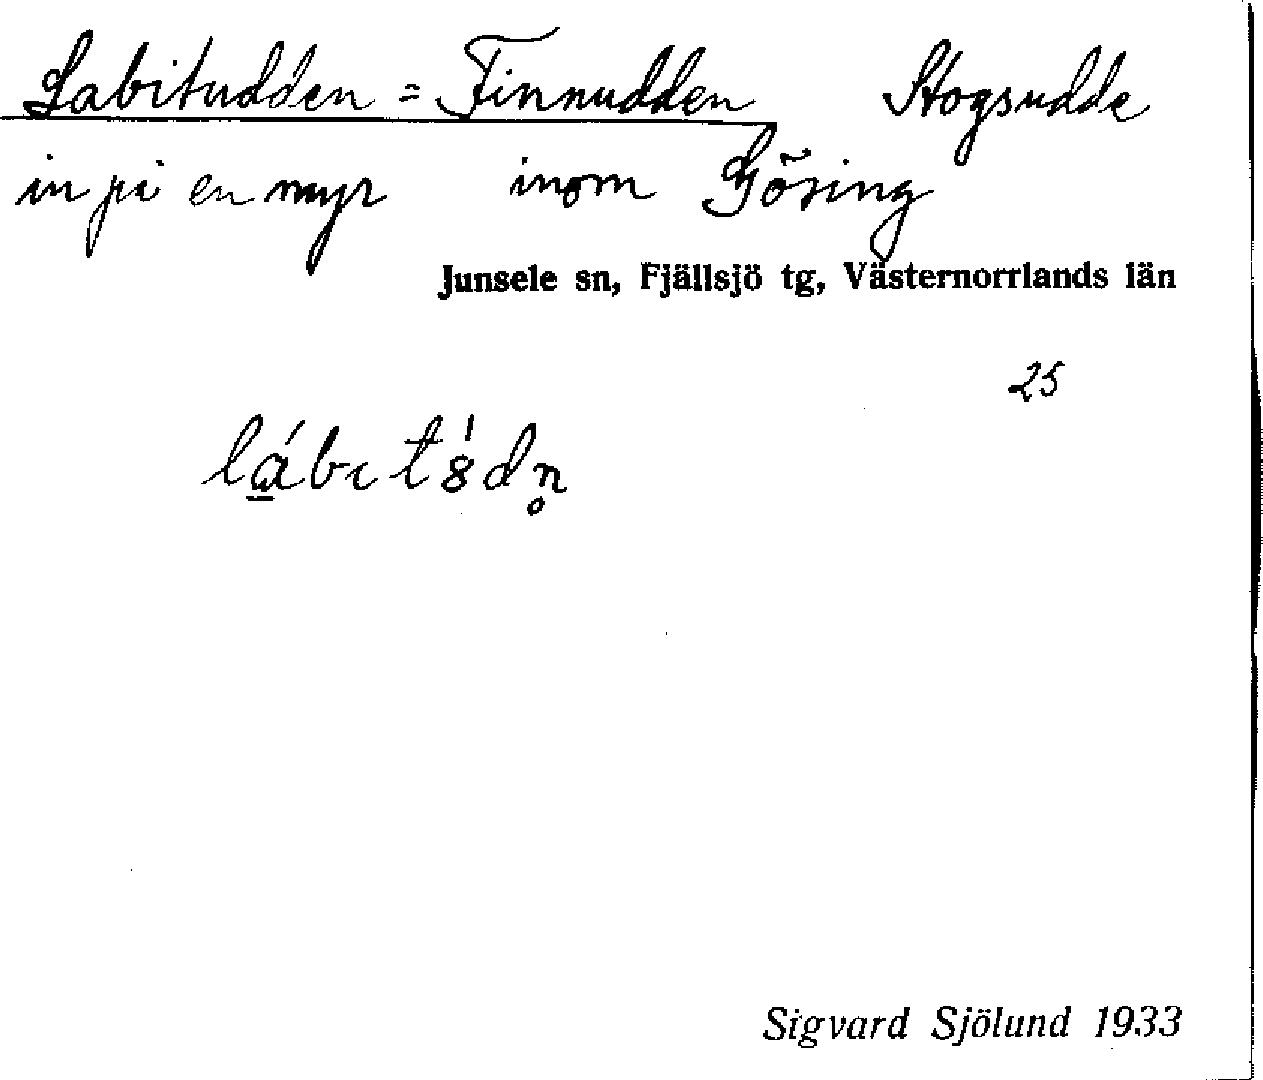 Labitudden = Finnudden Skogsudde
in på en myr inom Gösing
Junsele sn, Fjällsjö tg, Västernorrlands län
25
lábıt8́dn̥
Sigvard Sjölund 1933